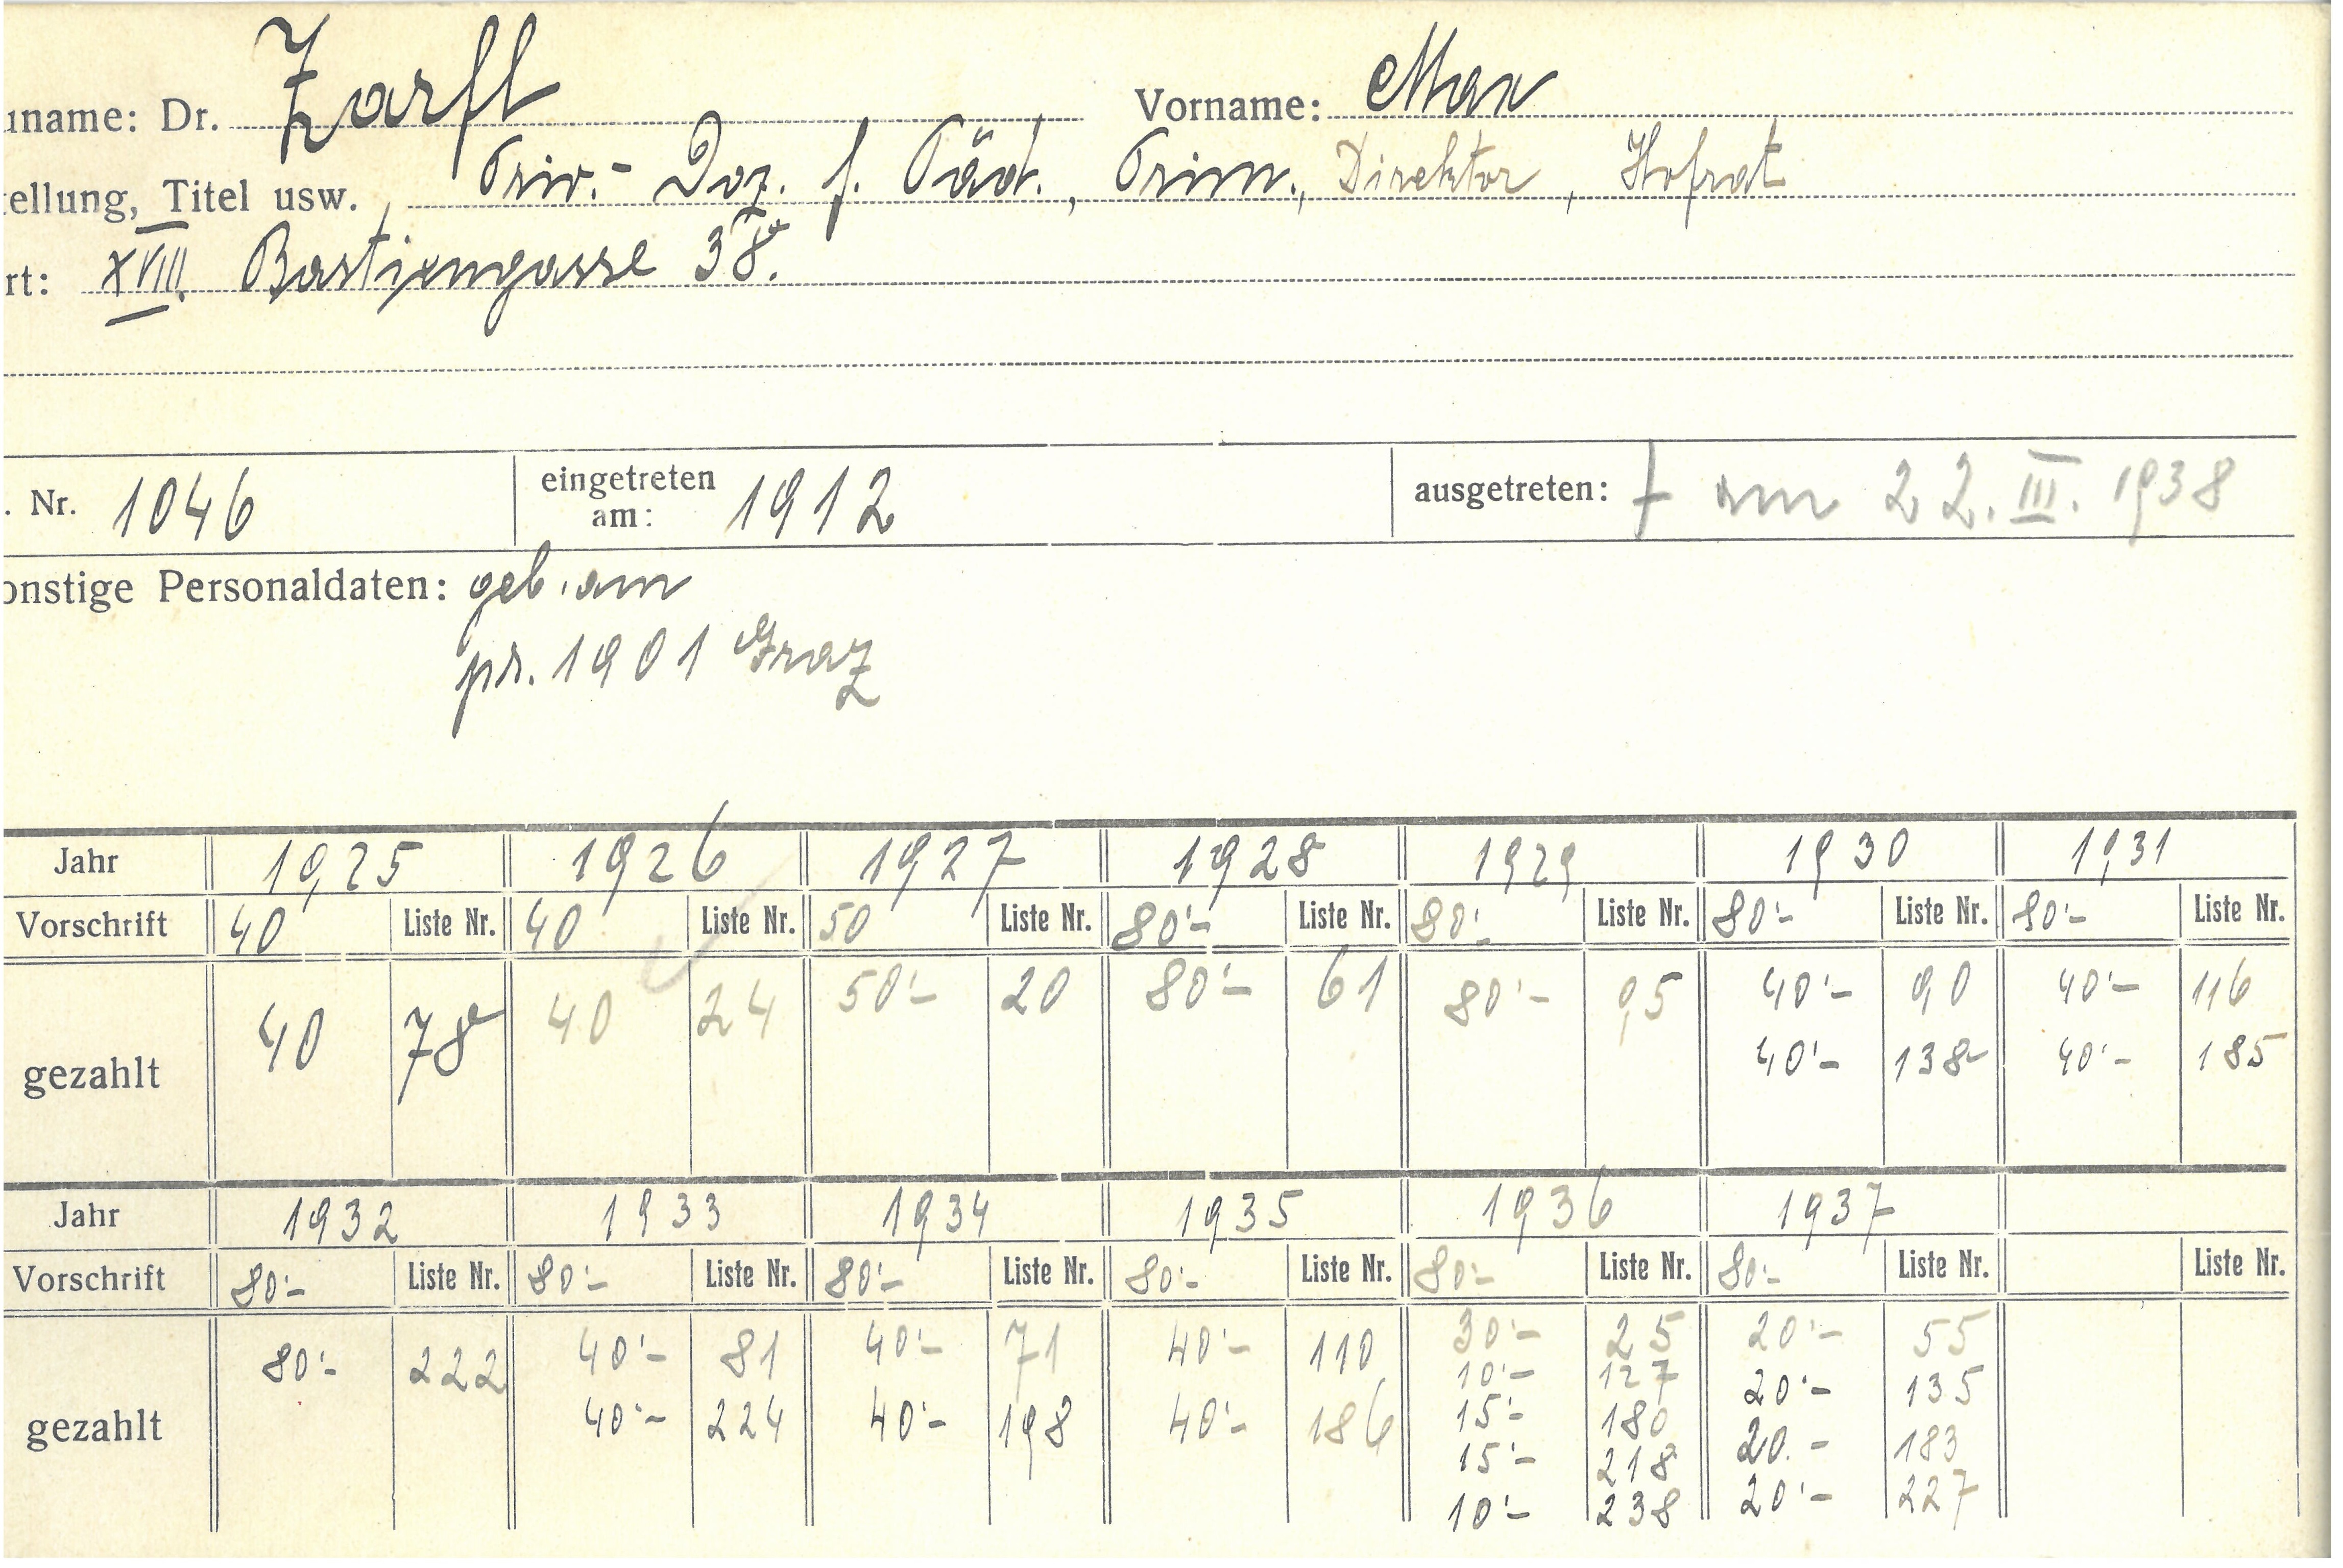 uname: Dr. Zarfl Vorname: Max
tellung, Titel usw. Priv.- Doz. f. Päd., Prim., Direktor, Hofrat
rt: XVIII. Bastiengasse 38.
. Nr. 1046 eingetreten am: 1912 ausgetreten: † am 22. III. 1938
onstige Personaldaten: geb. am
pr. 1901 Graz
Jahr 1925 1926 1927 1928 1929 1930 1931
Vorschrift 40 Liste Nr. 40 Liste Nr. 50 Liste Nr. 80'- Liste Nr. 80'- Liste Nr. 80'- Liste Nr. 80'- Liste Nr.
gezahlt 40 78 40 24 50'- 20 80'- 61 80'- 95 40'- 90 40'- 116
40'- 138 40'- 185
Jahr 1932 1933 1934 1935 1936 1937
Vorschrift 80'- Liste Nr. 80'- Liste Nr. 80'- Liste Nr. 80'- Liste Nr. 80'- Liste Nr. 80'- Liste Nr. Liste Nr.
gezahlt 80'- 222 40'- 81 40'- 71 40'- 110 30'- 25 20'- 55
10'- 127 20'- 135
40'- 224 40'- 198 40'- 186 15'- 180
15'- 218 20.- 183
10'- 238 20'- 227